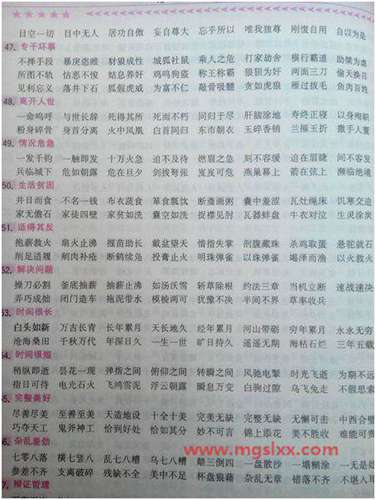 目空一切 目中无人 居功自傲 妄自尊大 忘乎所以 唯我独尊 刚愎自用 自以为是
47. 专干坏事
不择手段 暴戾恣睢 豺狼成性 城狐社鼠 乘人之危 打家劫舍 横行霸道 助桀为虐
所图不轨 怙恶不悛 姑息养奸 鸡鸣狗盗 称王称霸 狼狈为奸 两面三刀 偷天换日
见利忘义 落井下石 狐假虎威 为富不仁 敲骨吸髓 贪如虎狼 雁过拔毛 鱼肉百姓
48. 离开人世
一命呜呼 与世长辞 死得其所 死而不朽 同归于尽 肝脑涂地 寿终正寝 以身殉职
粉身碎骨 身首分离 火中凤凰 白首同归 东市朝衣 玉碎香销 兰摧玉折
49. 情况危急
一发千钧 一触即发 十万火急 迫不及待 燃眉之急 刻不容缓 迫在眉睫 间不容发
兵临城下 危如朝露 危在旦夕 剑拔弩张 岌岌可危 燕巢幕上 箭在弦上 濒临绝境
50. 生活贫困
并日而食 不名一钱 布衣蔬食 箪食瓢饮 断齑画粥 囊中羞涩 瓦灶绳床 饥寒交迫
家无儋石 家徒四壁 家贫如洗 一贫如洗 捉襟见肘 瓦器蚌盘 牛衣对泣 生灵涂炭
51. 适得其反
抱薪救火 扇火止沸 揠苗助长 戴盆望天 惜指失掌 剖腹藏珠 杀鸡取蛋 悬驼就石
削足适履 剜肉补疮 断鹤续凫 投膏止火 明珠弹雀 饮鸩止渴 竭泽而渔 以火救火
52. 解决问题
操刀必割 釜底抽薪 抽薪止沸 如汤沃雪 斩草除根 约法三章 当机立断 速战速决
弄巧成拙 闭门造车 拖泥带水 模棱两可 犹豫不决 半间不界 草率收兵
53. 时间很长
白头如新 万古长青 长年累月 天长地久 经年累月 河山带砺 穷年累月 永永无穷
沧海桑田 千秋万代 年深日久 一年半载 旷日持久 遥遥无期 海枯石烂 三年五载
54. 时间很短
稍纵即逝 昙花一现 弹指之间 俯仰之间 转瞬之间 风驰电掣 时光飞逝 为期不远
指日可待 电光石火 飞鸿雪泥 浮云朝露 瞬息万变 白驹过隙 乌飞兔走 不假思索
55. 完整美好
尽善尽美 至善至美 天造地设 十全十美 完美无缺 完整无缺 无懈可击 中西合璧
巧夺天工 鬼斧神工 恰到好处 恰如其分 妙不可言 锦上添花 美不胜收
56. 杂乱差劲
七零八落 横七竖八 乱七八糟 乌七八糟 颠三倒四 一盘散沙 一塌糊涂 一无是处
参差不齐 支离破碎 残缺不全 美中不足
57. 辩证管理
www.mgslxx.com